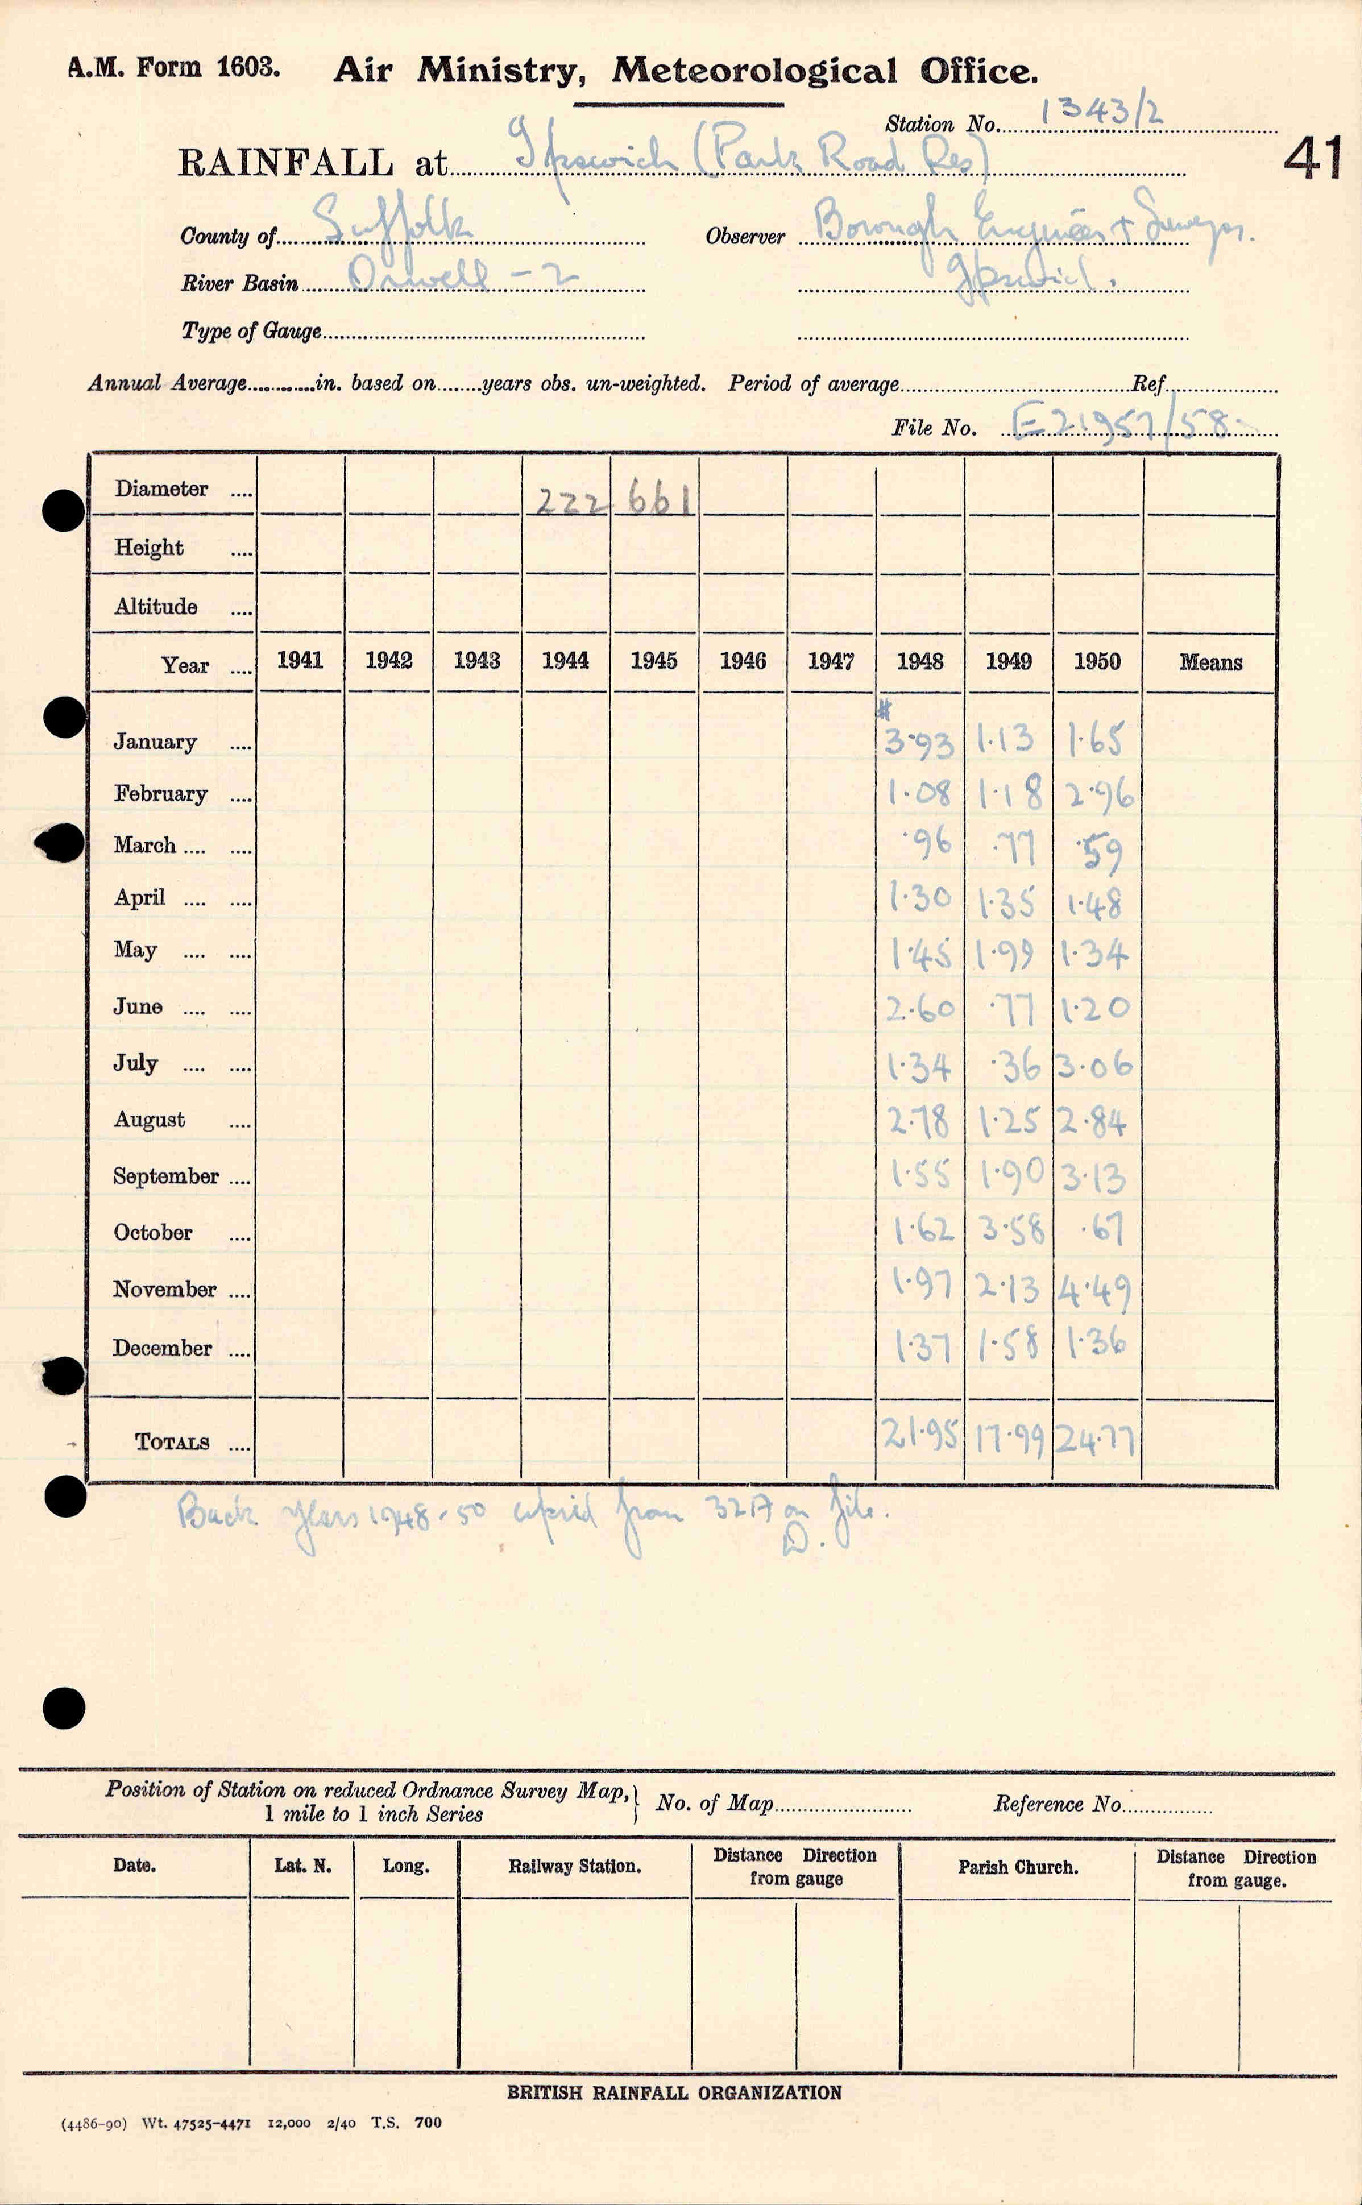 A.M. Form 1603. Air Ministry, Meteorological Office.
Station No. 1343/2
41
RAINFALL at Ipswich (Park Road Res)
County of Suffolk Observer Borough Engineer + Surveyor.
River Basin Orwell - 2 Ipswich.
Type of Gauge
Annual Average in. based on years obs. un-weighted. Period of average Ref.
File No. E21957/58
Diameter 222 661
Height
Altitude
Year 1941 1942 1943 1944 1945 1946 1947 1948 1949 1950 Means
#
January 3.93 1.13 1.65
February 1.08 1.18 2.96
March .96 .77 .59
April 1.30 1.35 1.48
May 1.45 1.99 1.34
June 2.60 .77 1.20
July 1.34 .36 3.06
August 2.78 1.25 2.84
September 1.55 1.90 3.13
October 1.62 3.58 .67
November 1.97 2.13 4.49
December 1.37 1.58 1.36
TOTALS 21.95 17.99 24.77
Back years 1948-50 copied from 321A on file.
D.
Position of Station on reduced Ordnance Survey Map, } No. of Map Reference No.
1 mile to 1 inch Series
Date. Lat. N. Long. Railway Station. Distance Direction from gauge Parish Church. Distance Direction from gauge.
BRITISH RAINFALL ORGANIZATION
(4486-90) Wt. 47525-4471 12,000 2/40 T.S. 700